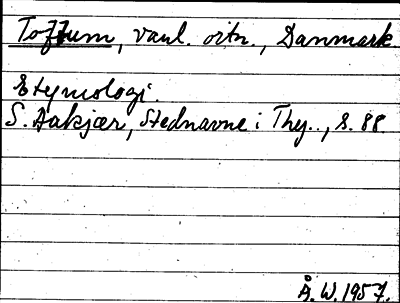 Toftum, vanl. ortn., Danmark.
Etymologi.
S. Aakjær, Stednavne i Thy.., s. 88
Å. W. 1957.